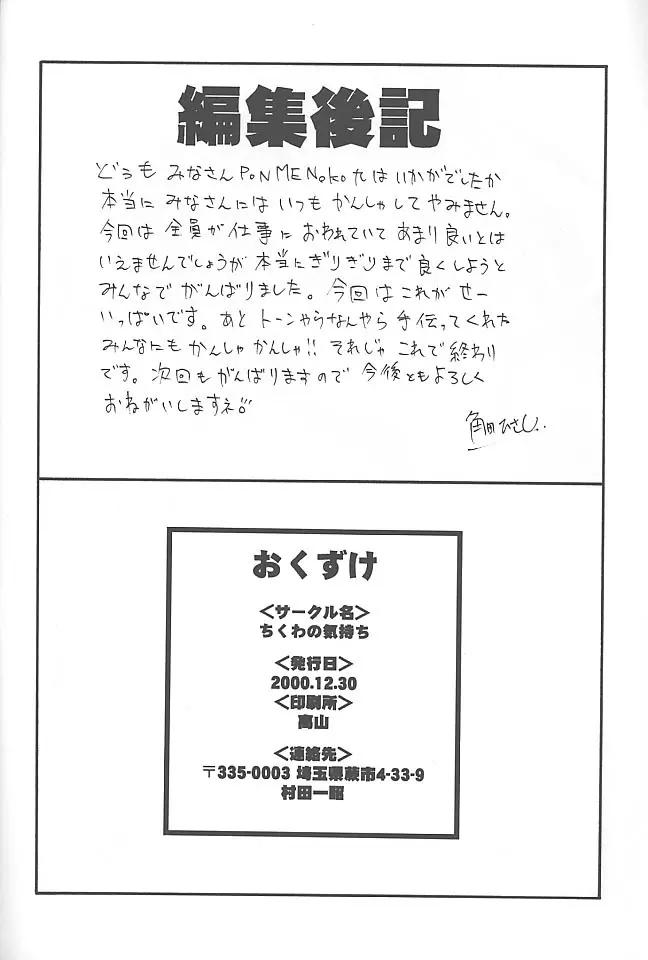 編集後記
どうも みなさん PONMENOKO九は いかがでしたか
本当に みなさんには いつも かんしゃして やみません。
今回は 全員が 仕事に おわれていて あまり良いとは
いえませんでしょうが 本当にぎりぎりまで 良くしようと
みんなで がんばりました。今回は これが せー
いっぱいです。あと トーンやらなんやら 手伝ってくれた
みんなにも かんしゃ かんしゃ!! それじゃ これで 終わり
です。次回も がんばりますので 今後ともよろしく
おねがいしますネ
角田ひさし..
おくずけ
＜サークル名＞
ちくわの気持ち
＜発行日＞
2000.12.30
＜印刷所＞
高山
＜連絡先＞
〒335-0003 埼玉県蕨市4-33-9
村田一昭